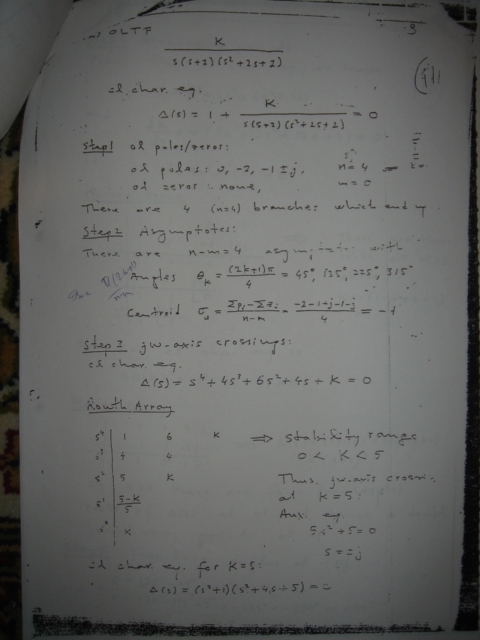 OLTF
3
K
s(s+2)(s²+2s+2)
cl char. eq.
Δ(s) = 1 + K / s(s+2)(s²+2s+2) = 0
Step1 ol poles/zeros:
ol poles: 0, -2, -1 ± j, n = 4
ol zeros: none, m = 0
There are 4 (n=4) branches which end up
Step2 Asymptotes:
There are n-m=4 asymptotes with
Angles θk = (2k+1)π / 4 = 45°, 135°, 225°, 315°
Centroid = Σpi - Σzi / n-m = -2-1+j-1-j / 4 = -1
Step 3 jw-axis crossings:
cl char. eq.
Δ(s) = s⁴ + 4s³ + 6s² + 4s + K = 0
Routh Array
s⁴ | 1 6 K ⇒ stability range
s³ | 4 4 0 < K < 5
s² | 5 K Thus, jw-axis
s¹ | 5-K / 5 at K = 5:
Aux. eq.
s⁰ | K 5s² + 5 = 0
s = ±j
cl char. eq. for K=5:
Δ(s) = (s²+1)(s²+4s+5) =